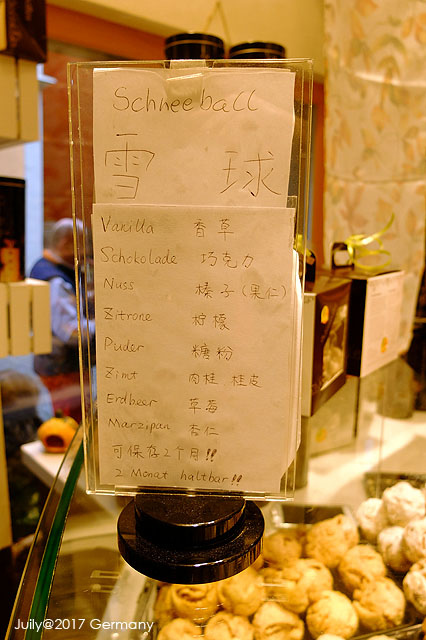 Schneeball
雪 球
Vanilla 香草
Schokolade 巧克力
Nuss 榛子(果仁)
Zitrone 柠檬
Puder 糖粉
Zimt 肉桂、桂皮
Erdbeer 草莓
Marzipan 杏仁
可保存2个月!!
2 Monat haltbar!!
Juily@2017 Germany